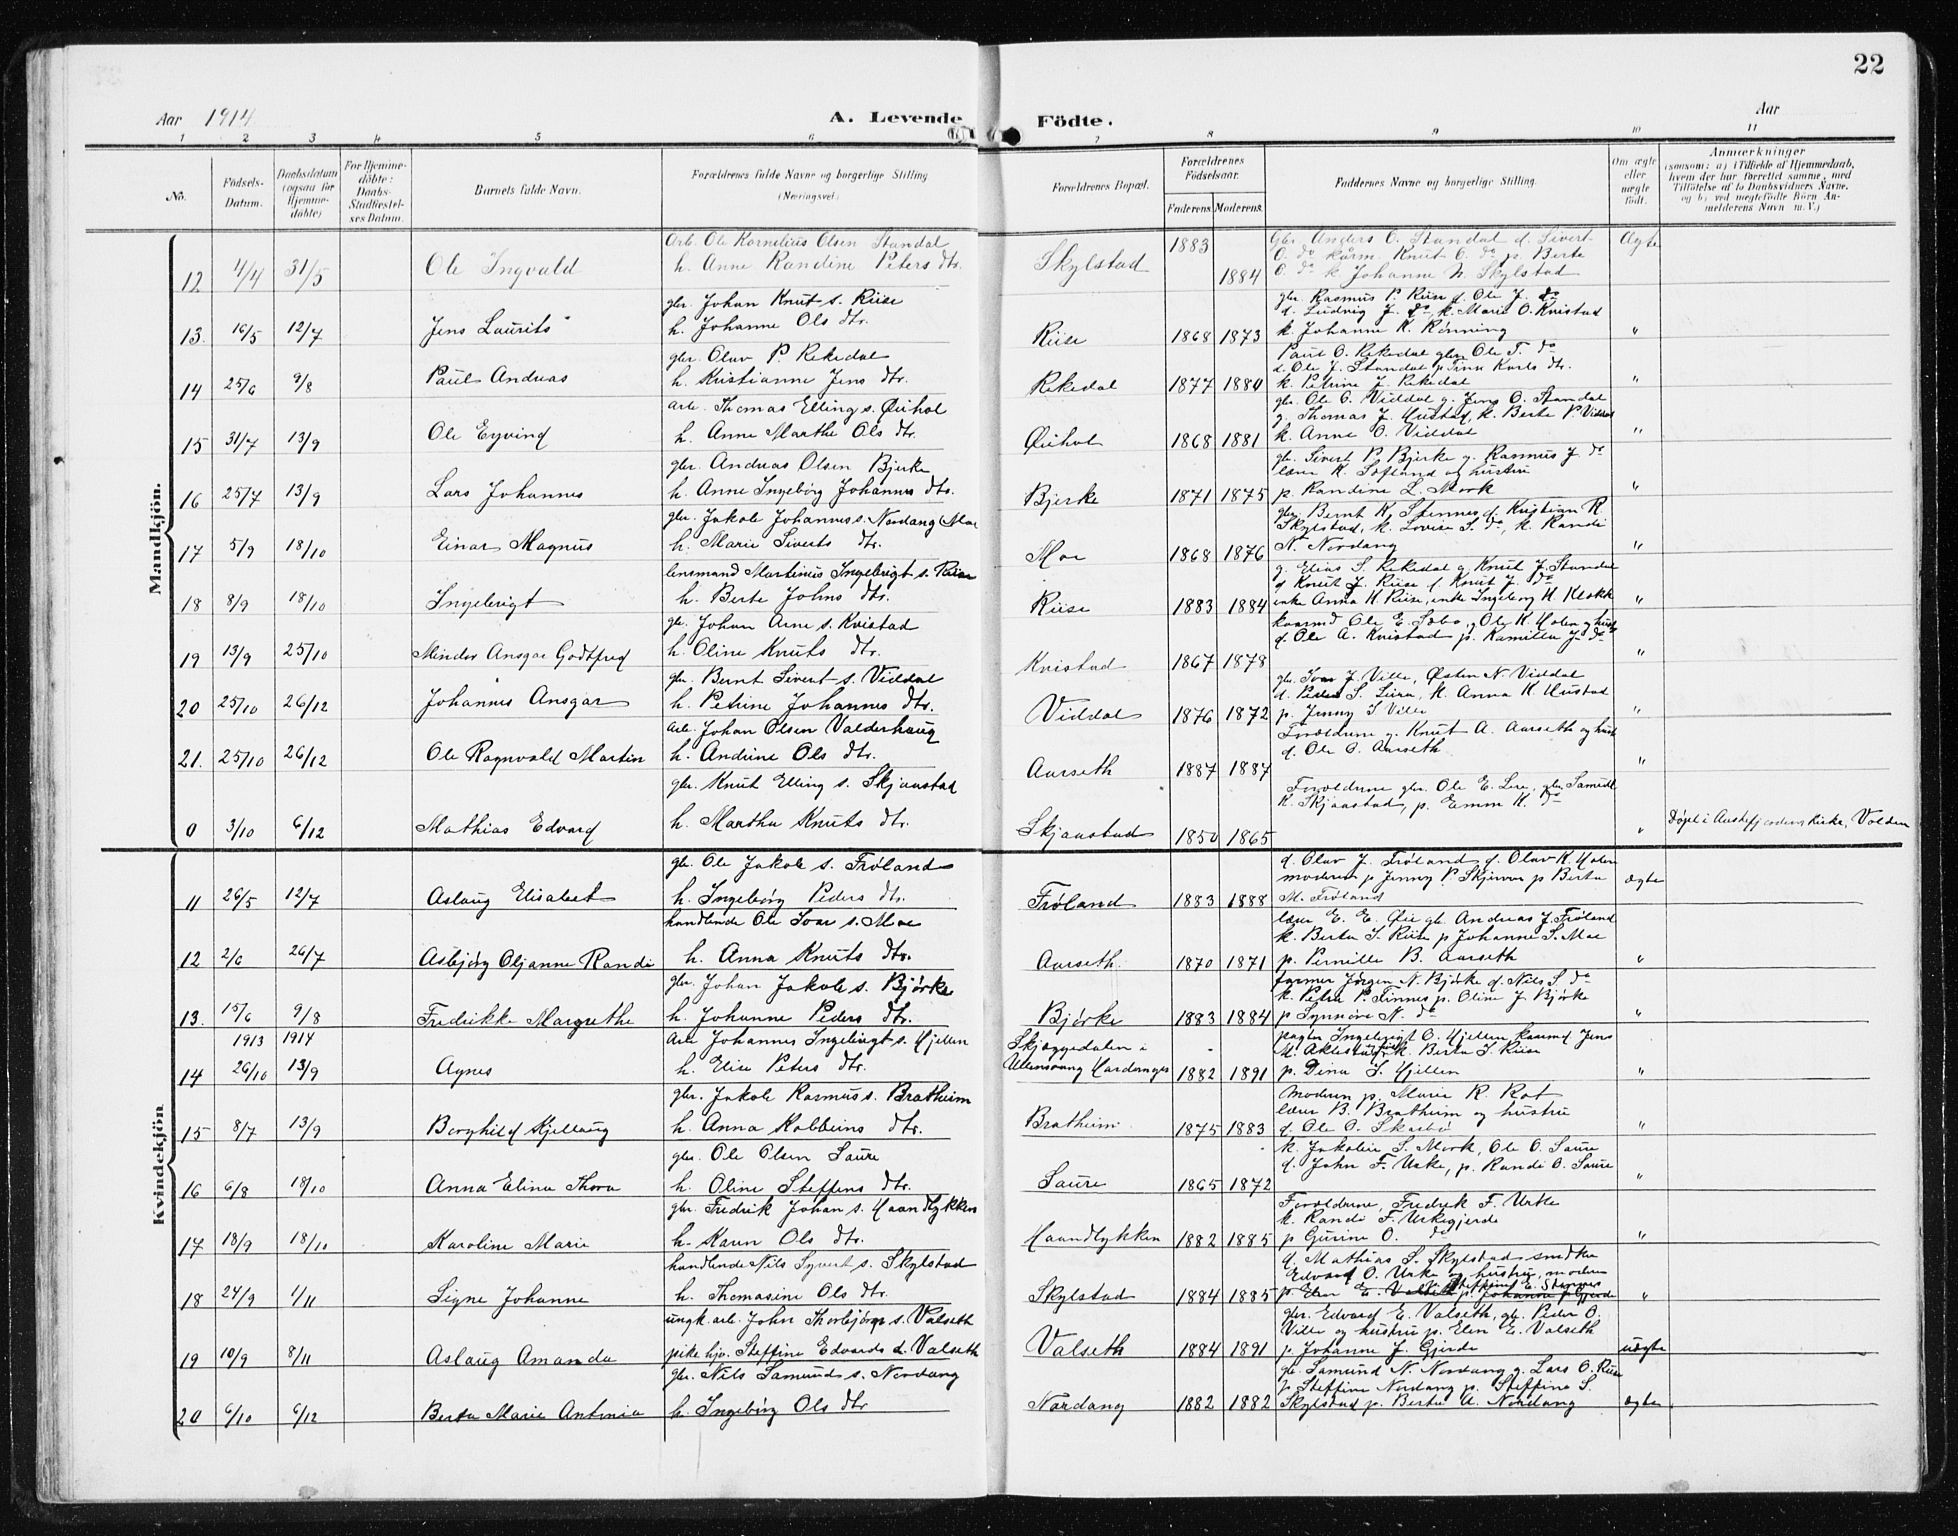 22
Aar 1914
A. Levende Födte.
Aar
1 2 3 4 5 6 7 8 9 10 11
No.
Födsels-Datum.
Daabsdatum (ogsaa for Hjemme-døbte)
For Hjemme-döbte: Daabs-Stadfæstel-ses Datum.
Barnets fulde Navn.
Forældrenes fulde Navne og borgerlige Stilling (Næringsvei)
Forældrenes Bopæl.
Forældrenes Födselsaar.
Faderens Moderens
Faddernes Navne og borgerlige Stilling.
Om ægte eller uægte født.
Anmærkninger
(saasom: a) i Tilfælde af Hjemmedaab, hvem der har forrettet samme, med Tilføielse af to Daabsvidners Navne, og b) ved uægtefødte Börn An-melderens Navn m. V.)
Mandkjön.
Arb. Ole Kornelius Olsen Standal
12 4/4 31/5 Ole Ingvald h. Anne Randine Peters dtr. Skylstad 1883 1884
Gbr. Anders O. Standal d. Sivert
O. do kårm. Knut O. do p. Berte
O. do k Johanne N. Skylstad
Ægte
gbr. Johan Knut s. Riise
13. 16/5 12/7 Jens Laurits h. Johanne Ols dtr. Riise 1868 1873
gbr. Rasmus P. Riise d. Ole J. do
d. Ludvig J. do, k. Marie O. Kvistad
k. Johanne K. Rønning
"
gbr. Olav P. Rekedal
14 25/6 9/8 Paul Andreas h. Kristianne Jens dtr. Rekedal 1877 1880
Paul O. Rekedal gbr. Ole T. do
d. Ole J. Standal p Trina Karls dtr.
k. Petrine J. Rekedal
"
arb. Thomas Elling s. Øihol
15 31/7 13/9 Ole Eyvind h. Anne Marthe Ols dtr. Øihol 1868 1881
gbr. Ole O. Viddal g. Jens O. Standal
g. Thomas J. Hustad, k. Berte P Viddal
k. Anne O. Viddal
"
gbr. Andreas Olsen Bjerke
16 25/7 13/9 Lars Johannes h. Anne Ingeborg Johannes dtr. Bjerke 1871 1875
gb. Sivert P. Bjerke g. Rasmus J do
lærer K. Sofland og hustru
p. Randine L. Mork
"
gbr. Jakob Johannes s. Nordang Moe
17 5/9 18/10 Einar Magnus h. Marie Siverts dtr. Moe 1868 1876
gbr Bernt K. Stennes d. Kristian R
Skylstad, k. Lovise S. do, k. Randi
N. Nordang
"
lensmand Martinus Ingebrigt s. Riise
18 8/9 18/10 Ingebrigt h. Berte Johns dtr. Riise 1883 1884
g. Elias S. Rekedal g Knut J. Standal
d Knut J. Riise d. Knut J. do
enke Anna H. Riise, enke Ingeborg H Klokk
"
gb. Johan Arne s. Kvistad
19 13/9 25/10 Mindor Ansgar Godtfred h. Oline Knuts dtr. Kvistad 1867 1878
kaarmd Ole E. Sæbø, g Ole K. Holen g hust
d. Ole A. Kvistad p. Kamilla J. do
"
gbr. Bernt Sivert s. Viddal
20 25/10 26/12 Johannes Ansgar h. Petrine Johannes dtr. Viddal 1876 1872
gbr. Ivar J Ville, Østen N. Viddal
d. Peder S. Leira, k. Anna K Hustad
p. Jenny I Ville
"
arb. Johan Olsen Valderhaug
21. 25/10 26/12 Ole Ragnvald Martin h. Andrine Ols dtr. Aarseth 1887 1887
Forældrene g. Knut A. Aarseth og hust
d. Ole O. Aarseth
"
gbr. Knut Elling s. Skjaastad
0 3/10 6/12 Mathias Edvard h. Martha Knuts dtr. Skjaastad 1850 1865
Forældrene gbr. Ole E. Lere, gbr. Samuel
K. Skjaastad, p. Emma K. do
"
Døpt i Austefjordens kirke, Volden
Kvindekjön
gb. Ole Jakob s. Frøland
11 26/5 12/7 Aslaug Elisabet h. Ingeborg Peders dtr. Frøland 1883 1888
d. Olav J. Frøland d. Olav K. Holen
moderen p Jenny P Skjervan p Berta
M. Frøland
ægte
handlende Ole Ivar s. Moe
12 2/6 26/7 Asbjørg Oljanne Randi h. Anna Knuts dtr. Aarseth 1870 1871
lærer E. E. Øie gb. Andreas J. Frøland
k. Berta S. Riise p Johanne S. Moe
p. Pernille B. Aarseth
"
gbr. Johan Jakob s. Bjørke
13. 15/6 9/8 Fredrikke Margrethe h. Johanne Peders dtr. Bjørke 1883 1884
farmer Jørgen N. Bjørke d. Nils S. do
k. Petra P. Finnes p. Oline J. Bjørke
p Synnøve N. do
"
1913 1914
Arb Johannes Ingebrigt s. Hjellen
14 26/10 13/9 Agnes h. Elise Peters dtr. Skjæggedalen i Ullensvang Hardanger 1882 1891
pagter Ingebrigt O. Hjellen kaarmd Jens
M. Aklestad k. Berta I. Riise
p. Dina I. Hjellen
"
gbr. Jakob Rasmus s. Bratheim
15 8/7 13/9 Borghild Kjellaug h. Anna Kolbeins dtr. Bratheim 1875 1883
Moderen p. Marie R. Rot
lærer B. Bratheim og hustru
d. Ole O. Skarbø
"
gbr. Ole Olsen Saure
16 6/8 18/10 Anna Elina Thora h. Oline Steffens dtr. Saure 1865 1872
k. Jakobie S. Mork, Ole O. Saure
d. John F. Urke, p. Randi O. Saure
"
gbr. Fredrik Johan s. Haandlykken
17 18/9 18/10 Karoline Marie h. Karen Ols dtr. Haandlykken 1882 1885
Forældrene, Fredrik F. Urke
k. Randi F. Urkegjerde
p Gurine O. do
"
handlende Nils Syvert s. Skylstad
18 24/9 1/11 Signe Johanne h. Thomasine Ols dtr. Skylstad 1884 1885
d. Mathias S. Skylstad snedker
Edvard O. Urke og hustru, moder
Steffine E. Stennes
p. Elen E. Valseth p. Johanne J. Gjerde
"
ungk. arb. John Thorbjørn s. Valseth
19 10/9 8/11 Aslaug Amanda pike hjv. Steffine Edvards d. Valseth Valseth 1884 1891
gbr. Edvard E. Valseth, gb. Peder O.
Ville og hustru p. Elen E. Valseth
p. Johanne J. Gjerde
uægte
gbr. Nils Samund s. Nordang
20 6/10 6/12 Berta Marie Antonia h. Ingeborg Ols dtr Nordang 1882 1882
gb. Samund N. Nordang g. Lars O. Riise
p Steffine Nordang p. Steffine S.
Skylstad p. Berta A. Nordang
ægte